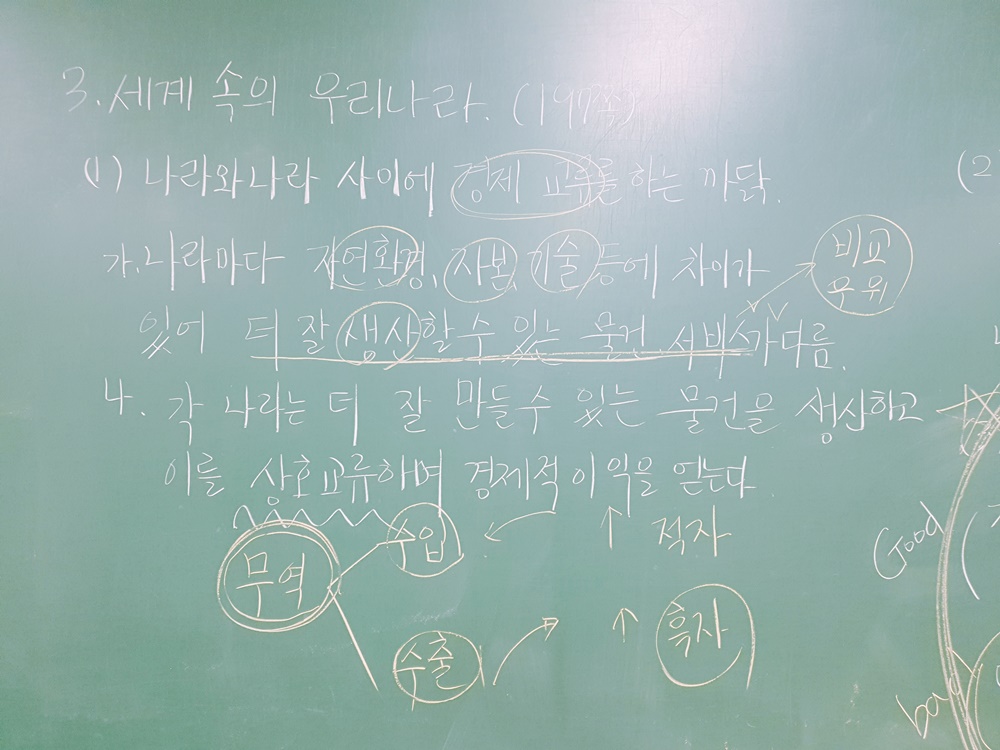 3. 세계 속의 우리나라. (197쪽)
(1) 나라와 나라 사이에 경제 교류를 하는 까닭.
(2
가. 나라마다 자연환경, 자본, 기술 등에 차이가
비교
우위
있어 더 잘 생산할 수 있는 물건 서비스가 다름.
나. 각 나라는 더 잘 만들 수 있는 물건을 생산하고
이를 상호교류하며 경제적 이익을 얻는다
수입 적자
무역
수출 흑자
Good
bad